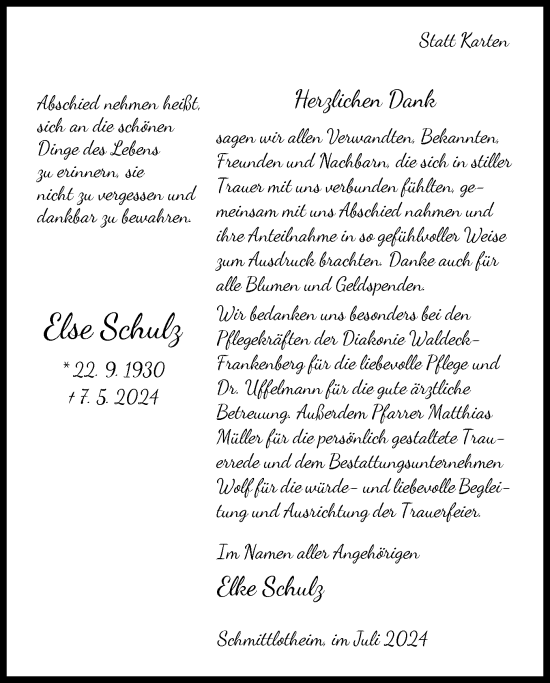 Statt Karten
Abschied nehmen heißt,
sich an die schönen
Dinge des Lebens
zu erinnern, sie
nicht zu vergessen und
dankbar zu bewahren.
Else Schulz
* 22. 9. 1930
† 7. 5. 2024
Herzlichen Dank
sagen wir allen Verwandten, Bekannten,
Freunden und Nachbarn, die sich in stiller
Trauer mit uns verbunden fühlten, ge-
meinsam mit uns Abschied nahmen und
ihre Anteilnahme in so gefühlvoller Weise
zum Ausdruck brachten. Danke auch für
alle Blumen und Geldspenden.
Wir bedanken uns besonders bei den
Pflegekräften der Diakonie Waldeck-
Frankenberg für die liebevolle Pflege und
Dr. Uffelmann für die gute ärztliche
Betreuung. Außerdem Pfarrer Matthias
Müller für die persönlich gestaltete Trau-
errede und dem Bestattungsunternehmen
Wolf für die würde- und liebevolle Beglei-
tung und Ausrichtung der Trauerfeier.
Im Namen aller Angehörigen
Elke Schulz
Schmittlotheim, im Juli 2024